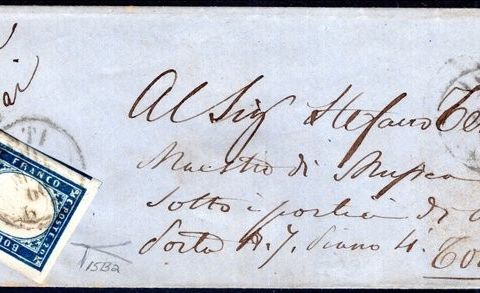 Al Sig Stefano Te
Maestro di Musica
Sotto i portici di
Porta N. 7. Piano 4.
To
FRANCO
C. POSTE 20
BOL
TI
15B2